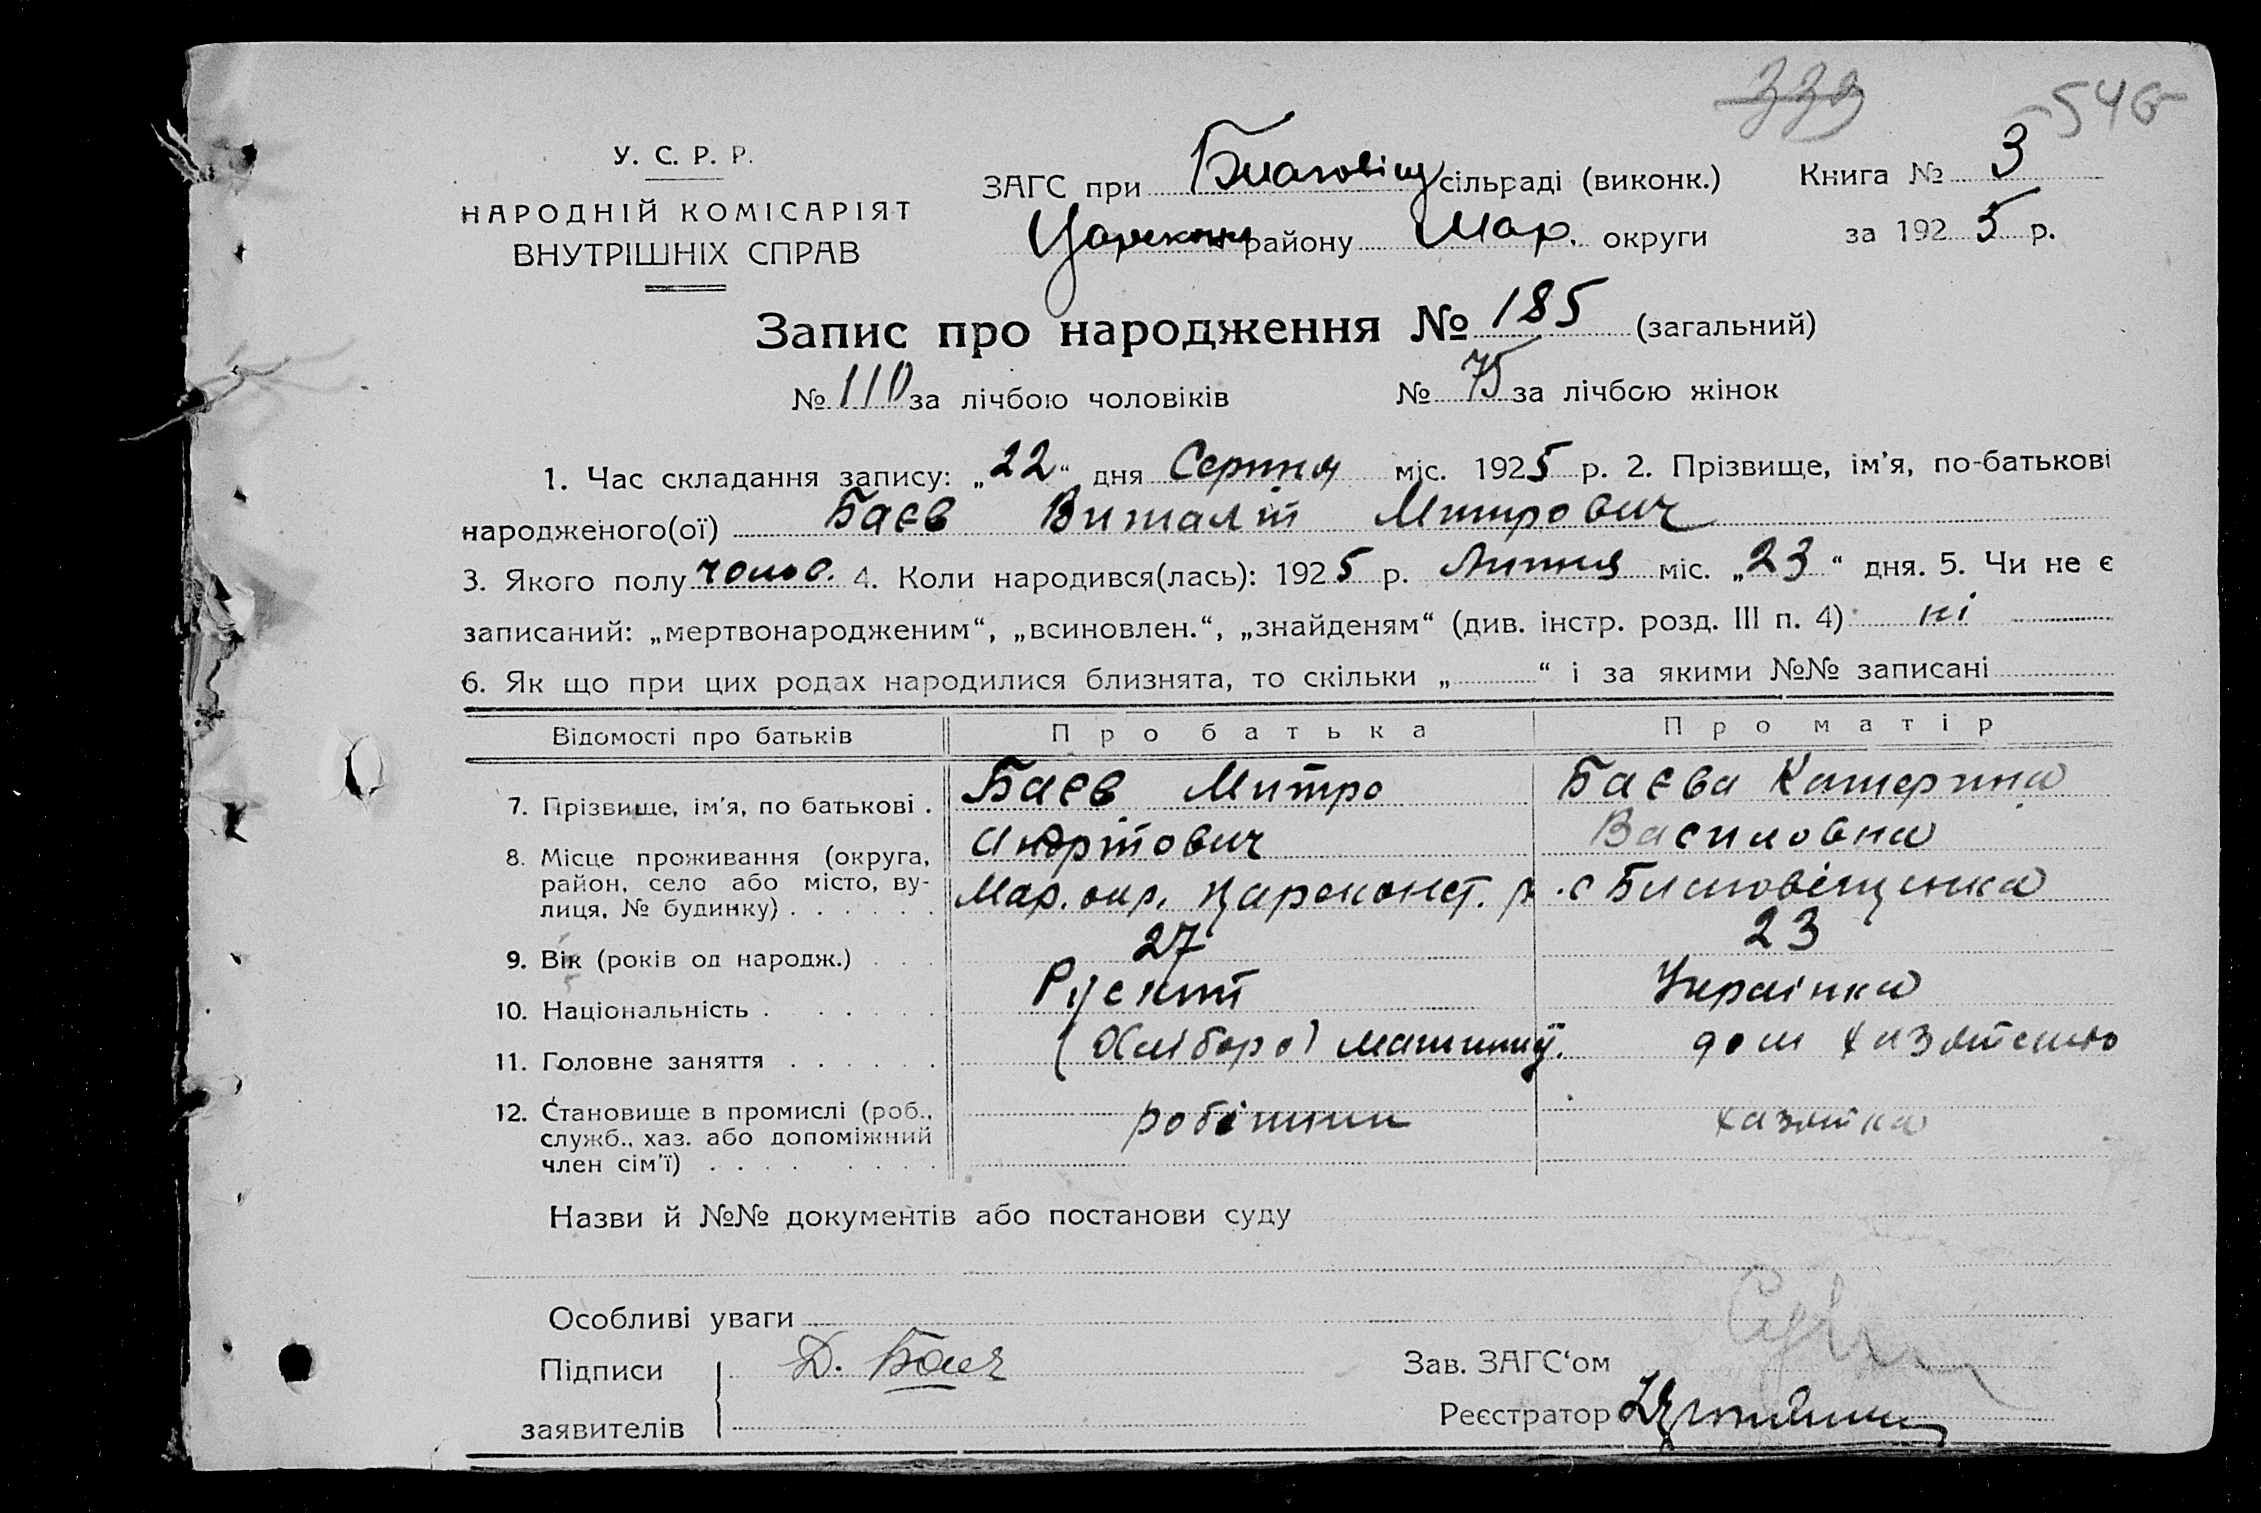 339 546
У. С. Р. Р.
НАРОДНІЙ КОМІСАРІЯТ
ВНУТРІШНІХ СПРАВ
ЗАГС при Благовіщ сільраді (виконк.) Книга № 3
Царекон району Мар. округи за 1925 р.
Запис про народження № 185 (загальний)
№ 110 за лічбою чоловіків № 75 за лічбою жінок
1. Час складання запису: „22“ дня Серпня міс. 1925 р. 2. Прізвище, ім'я, по-батькові
народженого(ої) Баєв Виталій Митрович
3. Якого полу чолов. 4. Коли народився(лась): 1925 р. Липня міс. „23“ дня. 5. Чи не є
записаний: „мертвонародженим“, „всиновлен.“, „знайденям“ (див. інстр. розд. III п. 4) ні
6. Як що при цих родах народилися близнята, то скільки „ “ і за якими №№ записані
Відомості про батьків Про батька Про матір
7. Прізвище, ім'я, по батькові . Баєв Митро Баєва Катерина
Андрійович Василовна
8. Місце проживання (округа,
район, село або місто, ву-
лиця, № будинку) . . . . . . Мар. окр. Цареконст. р. с Благовіщенка
9. Вік (років од народж.) . . . 27 23
10. Національність . . . . . . Руский Українка
11. Головне заняття . . . . . . (Хлібороб) машиниї. дом хазяйство
12. Становище в промислі (роб.,
служб., хаз. або допоміжний
член сім'ї) . . . . . . . . робітник хазяйка
Назви й №№ документів або постанови суду
Особливі уваги
Підписи Д. Баєв Зав. ЗАГС'ом
заявителів Реєстратор